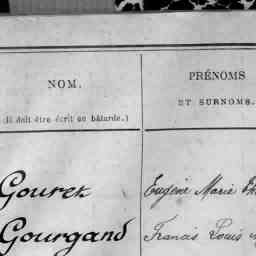 NOM.
(Il doit être écrit en bâtarde.)
PRÉNOMS
ET SURNOMS.
Gouret Eugène Marie
Gourgand Francis Louis